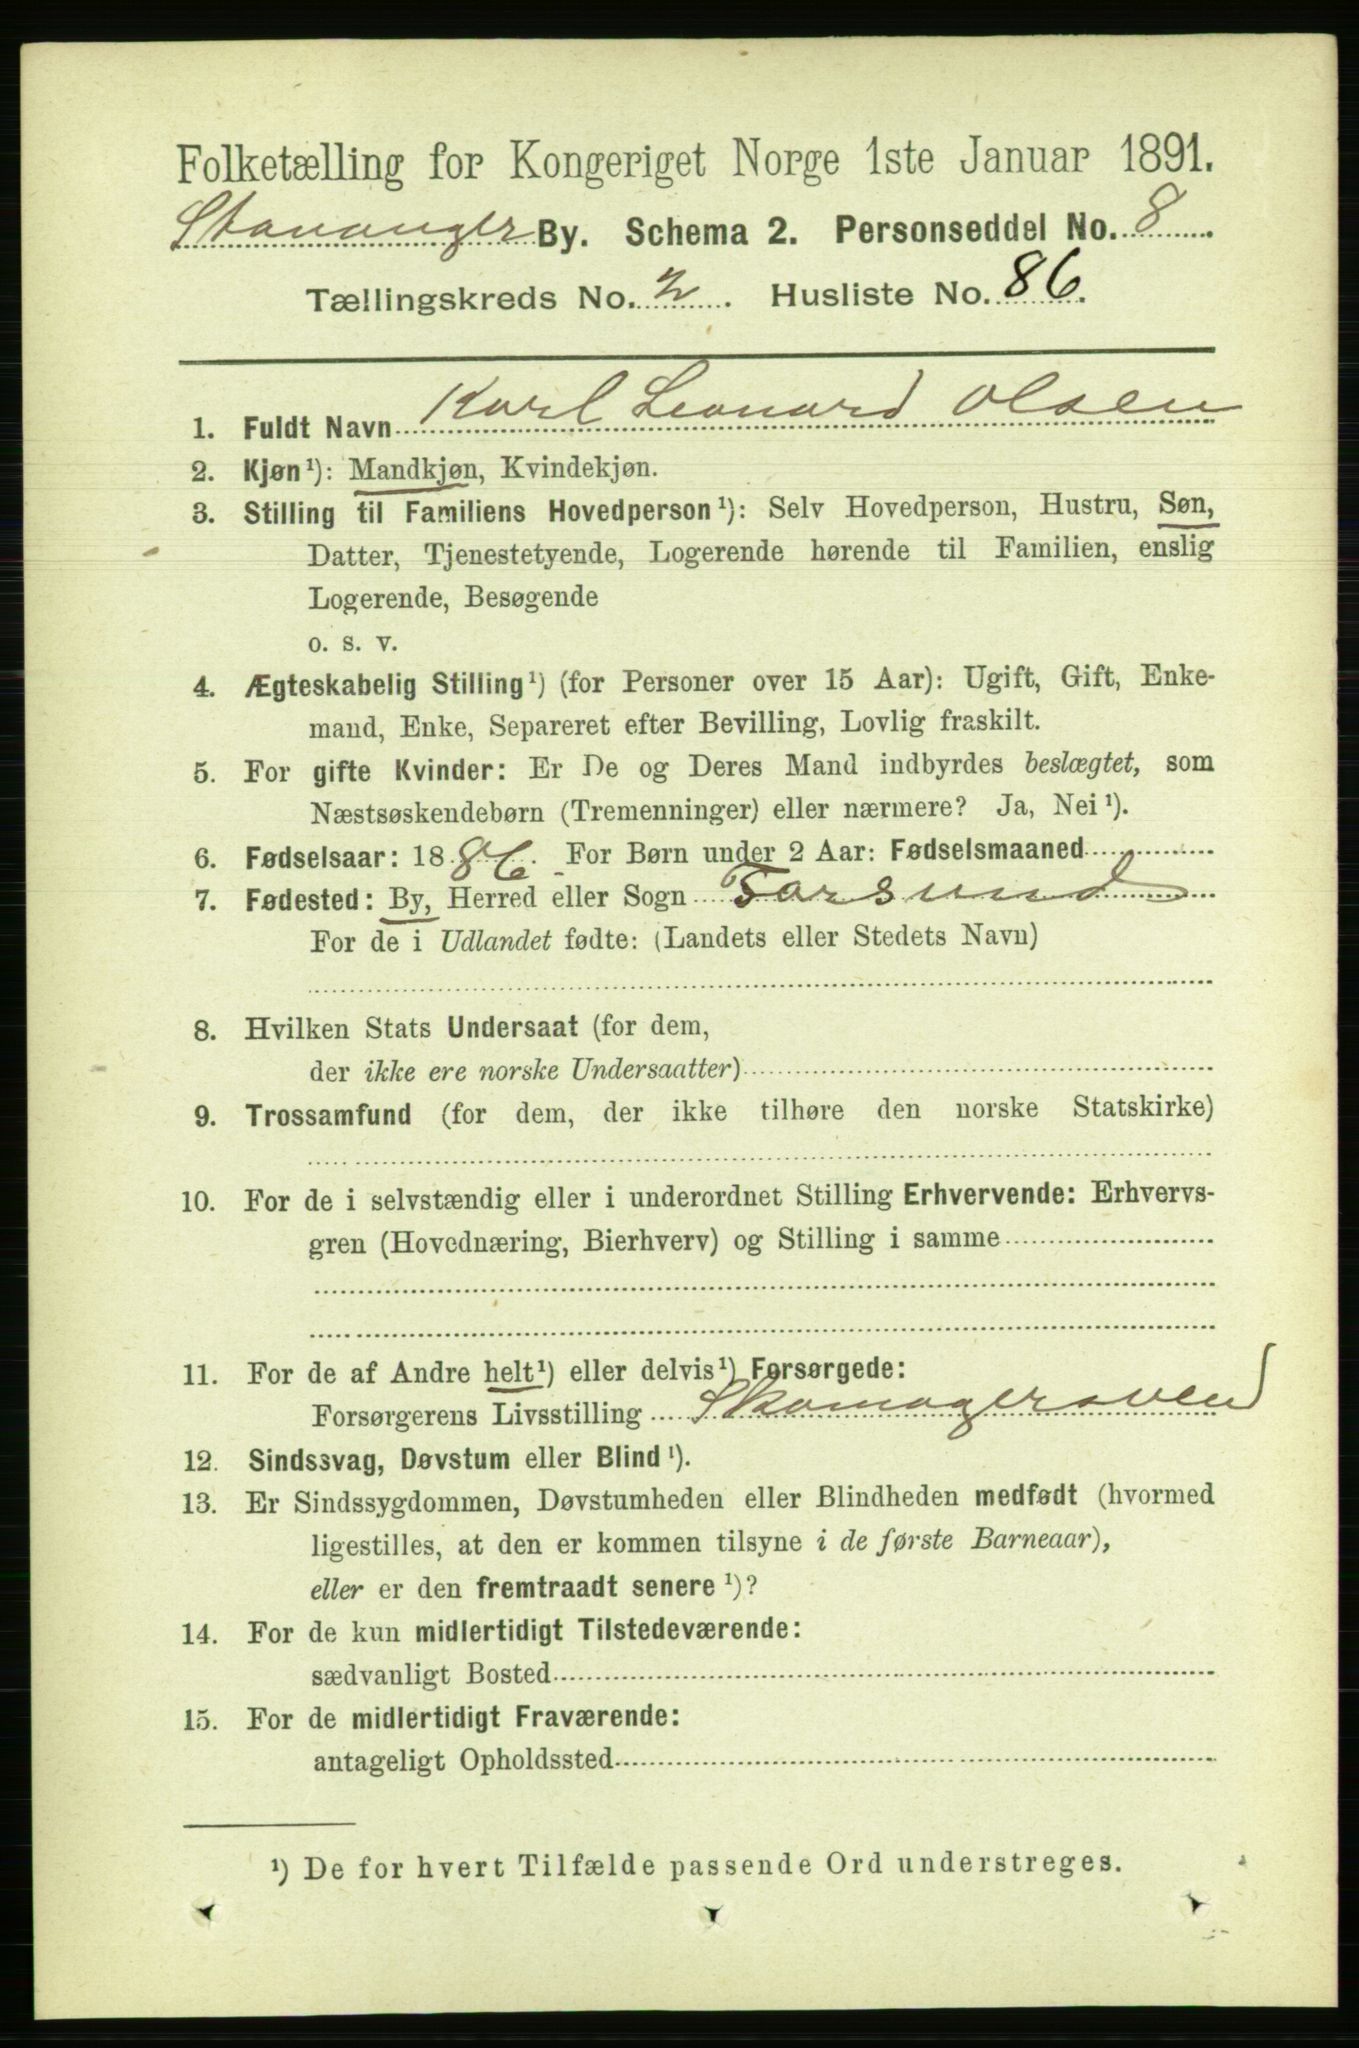 Folketælling for Kongeriget Norge 1ste Januar 1891.
Stavanger By. Schema 2. Personseddel No. 8
Tællingskreds No. 2. Husliste No. 86.
1. Fuldt Navn Karl Leonard Olsen
2. Kjøn¹): Mandkjøn, Kvindekjøn.
3. Stilling til Familiens Hovedperson¹): Selv Hovedperson, Hustru, Søn,
Datter, Tjenestetyende, Logerende hørende til Familien, enslig
Logerende, Besøgende
o. s. v.
4. Ægteskabelig Stilling¹) (for Personer over 15 Aar): Ugift, Gift, Enke-
mand, Enke, Separeret efter Bevilling, Lovlig fraskilt.
5. For gifte Kvinder: Er De og Deres Mand indbyrdes beslægtet, som
Næstsøskendebørn (Tremenninger) eller nærmere? Ja, Nei¹).
6. Fødselsaar: 1886. For Børn under 2 Aar: Fødselsmaaned
7. Fødested: By, Herred eller Sogn Farsund
For de i Udlandet fødte: (Landets eller Stedets Navn)
8. Hvilken Stats Undersaat (for dem,
der ikke ere norske Undersaatter)
9. Trossamfund (for dem, der ikke tilhøre den norske Statskirke)
10. For de i selvstændig eller i underordnet Stilling Erhvervende: Erhvervs-
gren (Hovednæring, Bierhverv) og Stilling i samme
11. For de af Andre helt¹) eller delvis¹) Forsørgede:
Forsørgerens Livsstilling Skomagersvend
12. Sindssvag, Døvstum eller Blind¹).
13. Er Sindssygdommen, Døvstumheden eller Blindheden medfødt (hvormed
ligestilles, at den er kommen tilsyne i de første Barneaar),
eller er den fremtraadt senere¹)?
14. For de kun midlertidigt Tilstedeværende:
sædvanligt Bosted
15. For de midlertidigt Fraværende:
antageligt Opholdssted
¹) De for hvert Tilfælde passende Ord understreges.